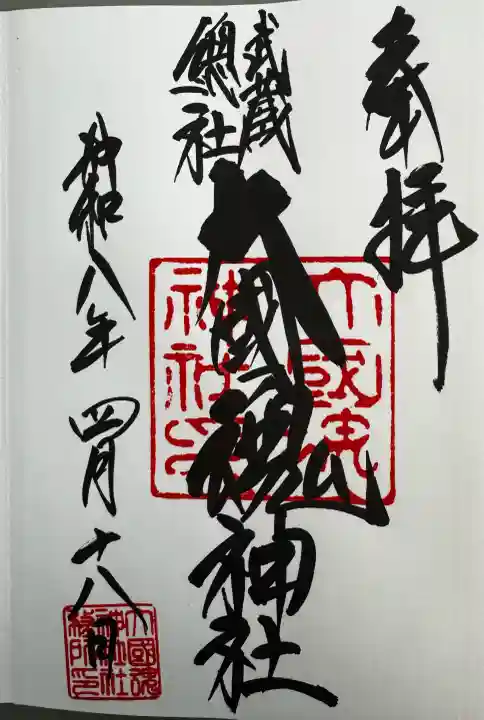 奉拝
武蔵
總社
大國魂神社
大國魂
神社印
令和八年四月十八日
大國魂
神社社
務所印